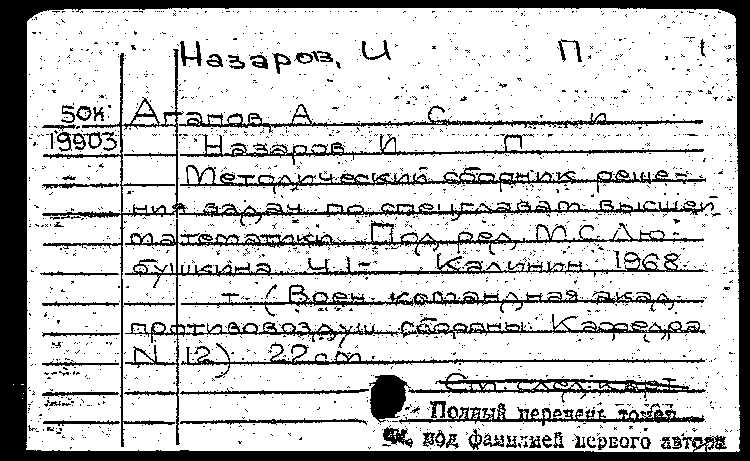 Назаров, И П.
50к Агапов, А С и
19903 Назаров И П
Методический сборник реше-
ния задач по спецглавам высшей
математики. Под ред. М.С. Лю-
бушкина Ч. 1- Калинин, 1968
т. (Воен. командная акад.
противовоздуш обороны. Кафедра
N 12) 22 см.
См. след. карт.
Полный перечень томов
см. под фамилией первого автора